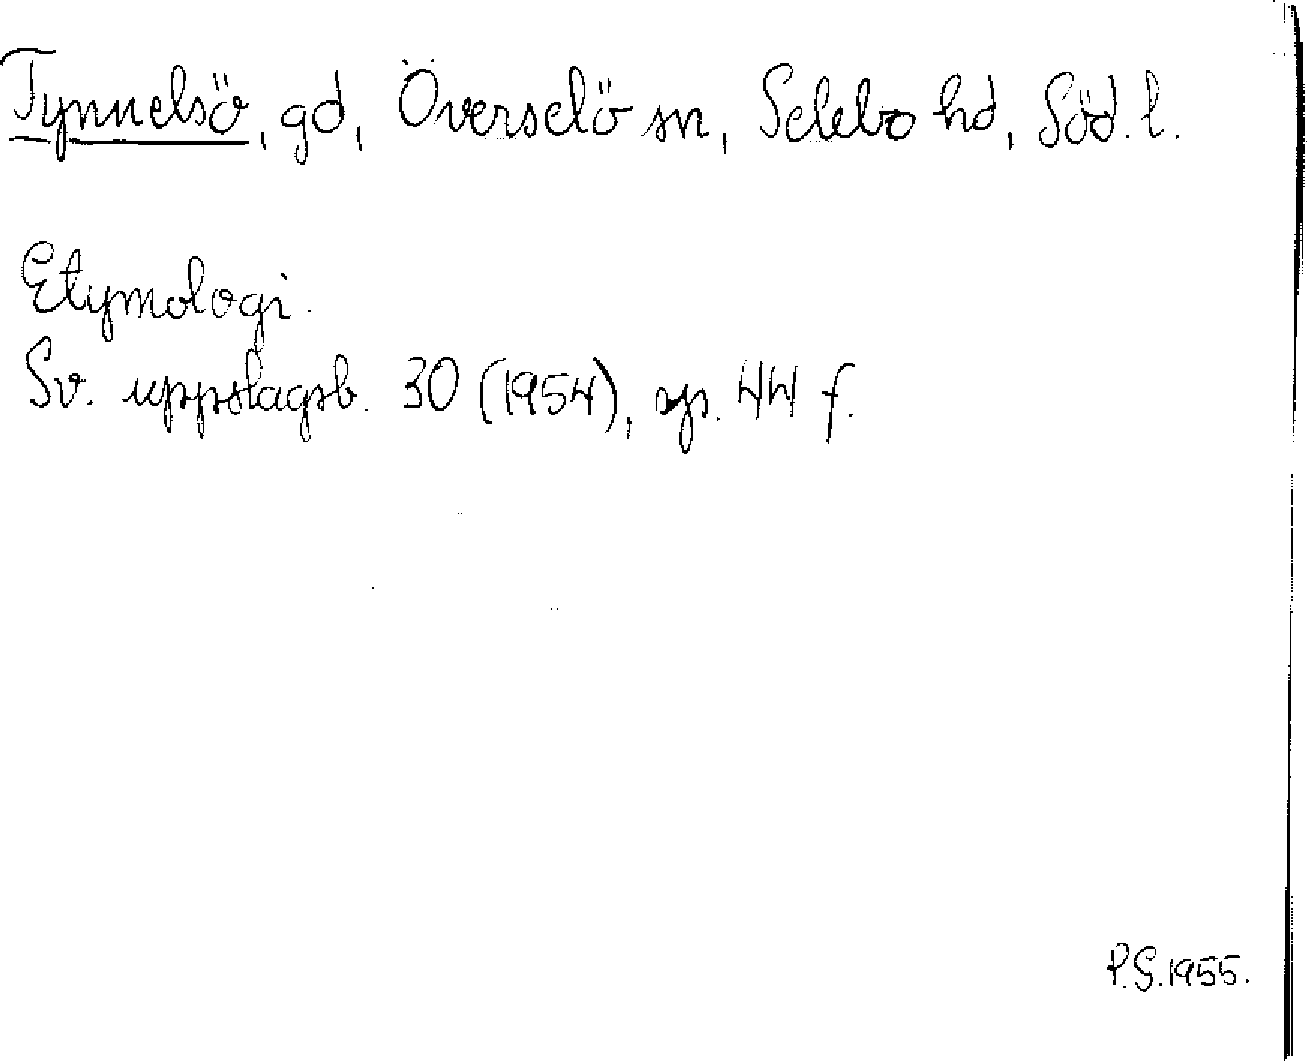 Tynnelsö, gd, Överselö sn, Selebo hd, Söd. l.
Etymologi.
Sv. uppslagsb. 30 (1954), sp. 44 f.
P.S. 1955.